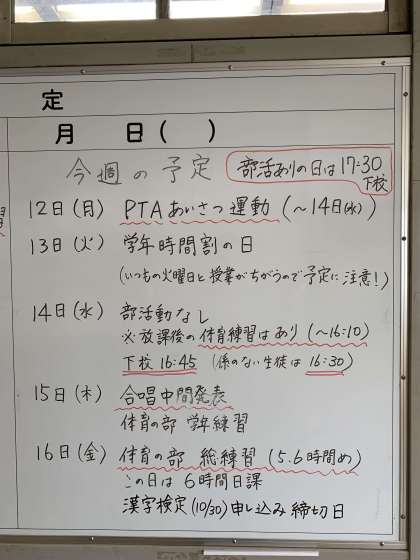 定
月 日( )
今週の予定
部活ありの日は17:30
下校
12日(月) PTAあいさつ運動(～14日(水))
13日(火) 学年時間割の日
(いつもの火曜日と授業がちがうので予定に注意!)
14日(水) 部活動なし
※放課後の体育練習はあり(～16:10)
下校16:45 (係のない生徒は16:30)
15日(木) 合唱中間発表
体育の部 学年練習
16日(金) 体育の部 総練習(5.6時間め)
この日は6時間日課
漢字検定(10/30)申し込み締切日